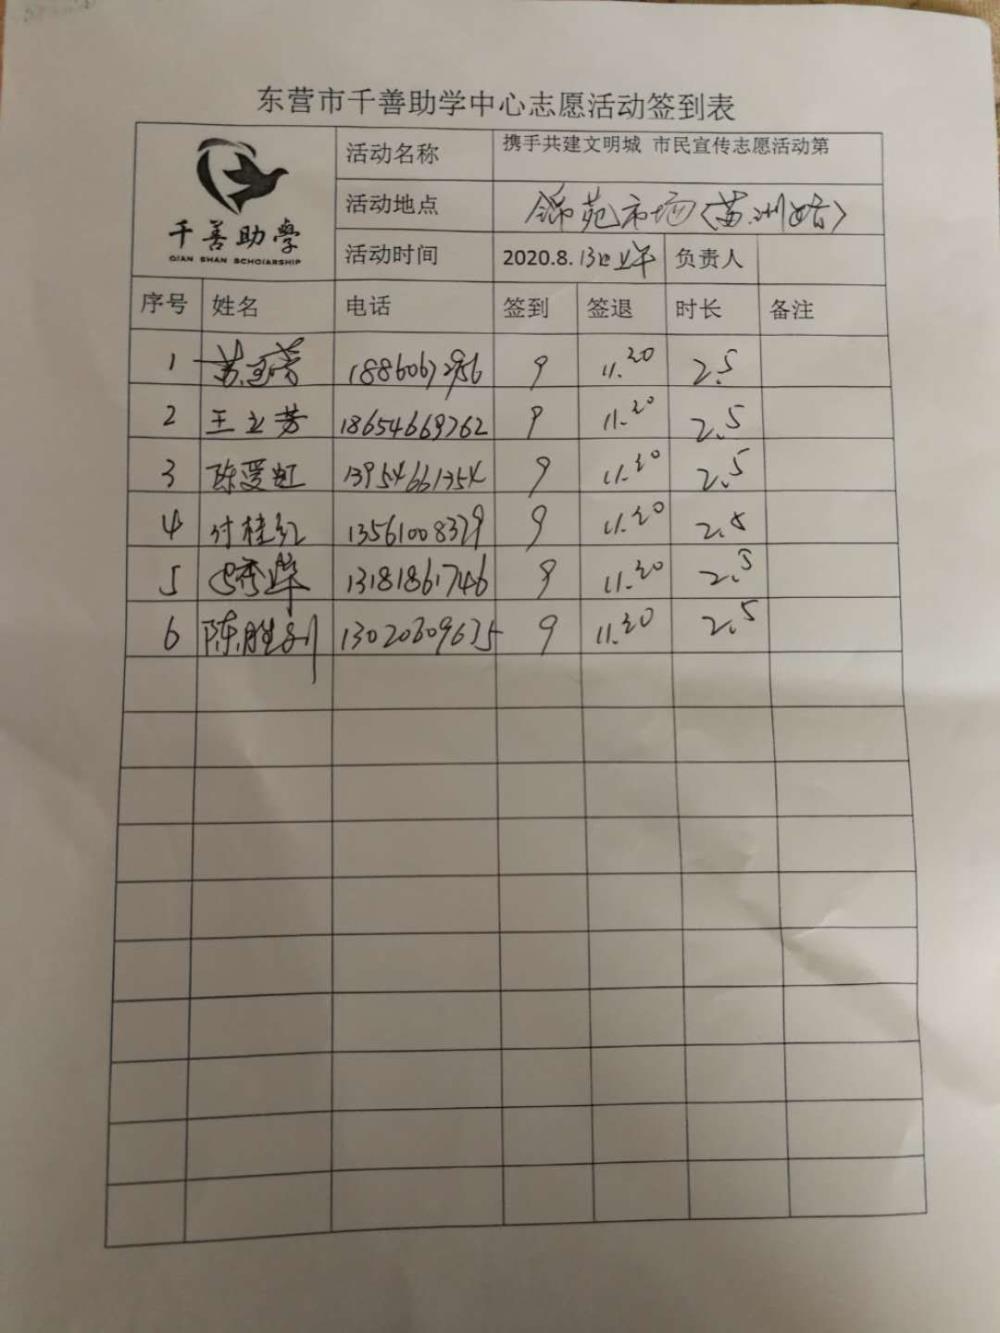 东营市千善助学中心志愿活动签到表
千善助學
QIAN SHAN SCHOIARSHIP
活动名称 携手共建文明城 市民宣传志愿活动第
活动地点 锦苑市场
活动时间 2020.8.13日上午 负责人
序号 姓名 电话 签到 签退 时长 备注
1 9 11.30 2.5
2 王立芳 18654669762 9 11.30 2.5
3 陈爱虹 13954661354 9 11.30 2.5
4 付桂红 13561008329 9 11.30 2.5
5 13181861746 9 11.30 2.5
6 陈胜利 13020609635 9 11.30 2.5